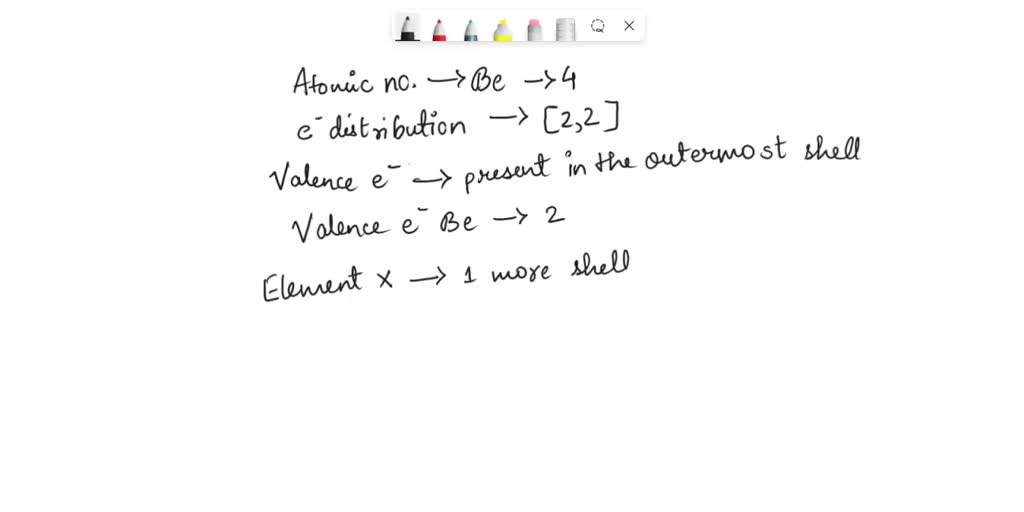 Atomic no. → Be → 4
e⁻ distribution → [2,2]
Valence e⁻ → present in the outermost shell
Valence e⁻ Be → 2
Element X → 1 more shell